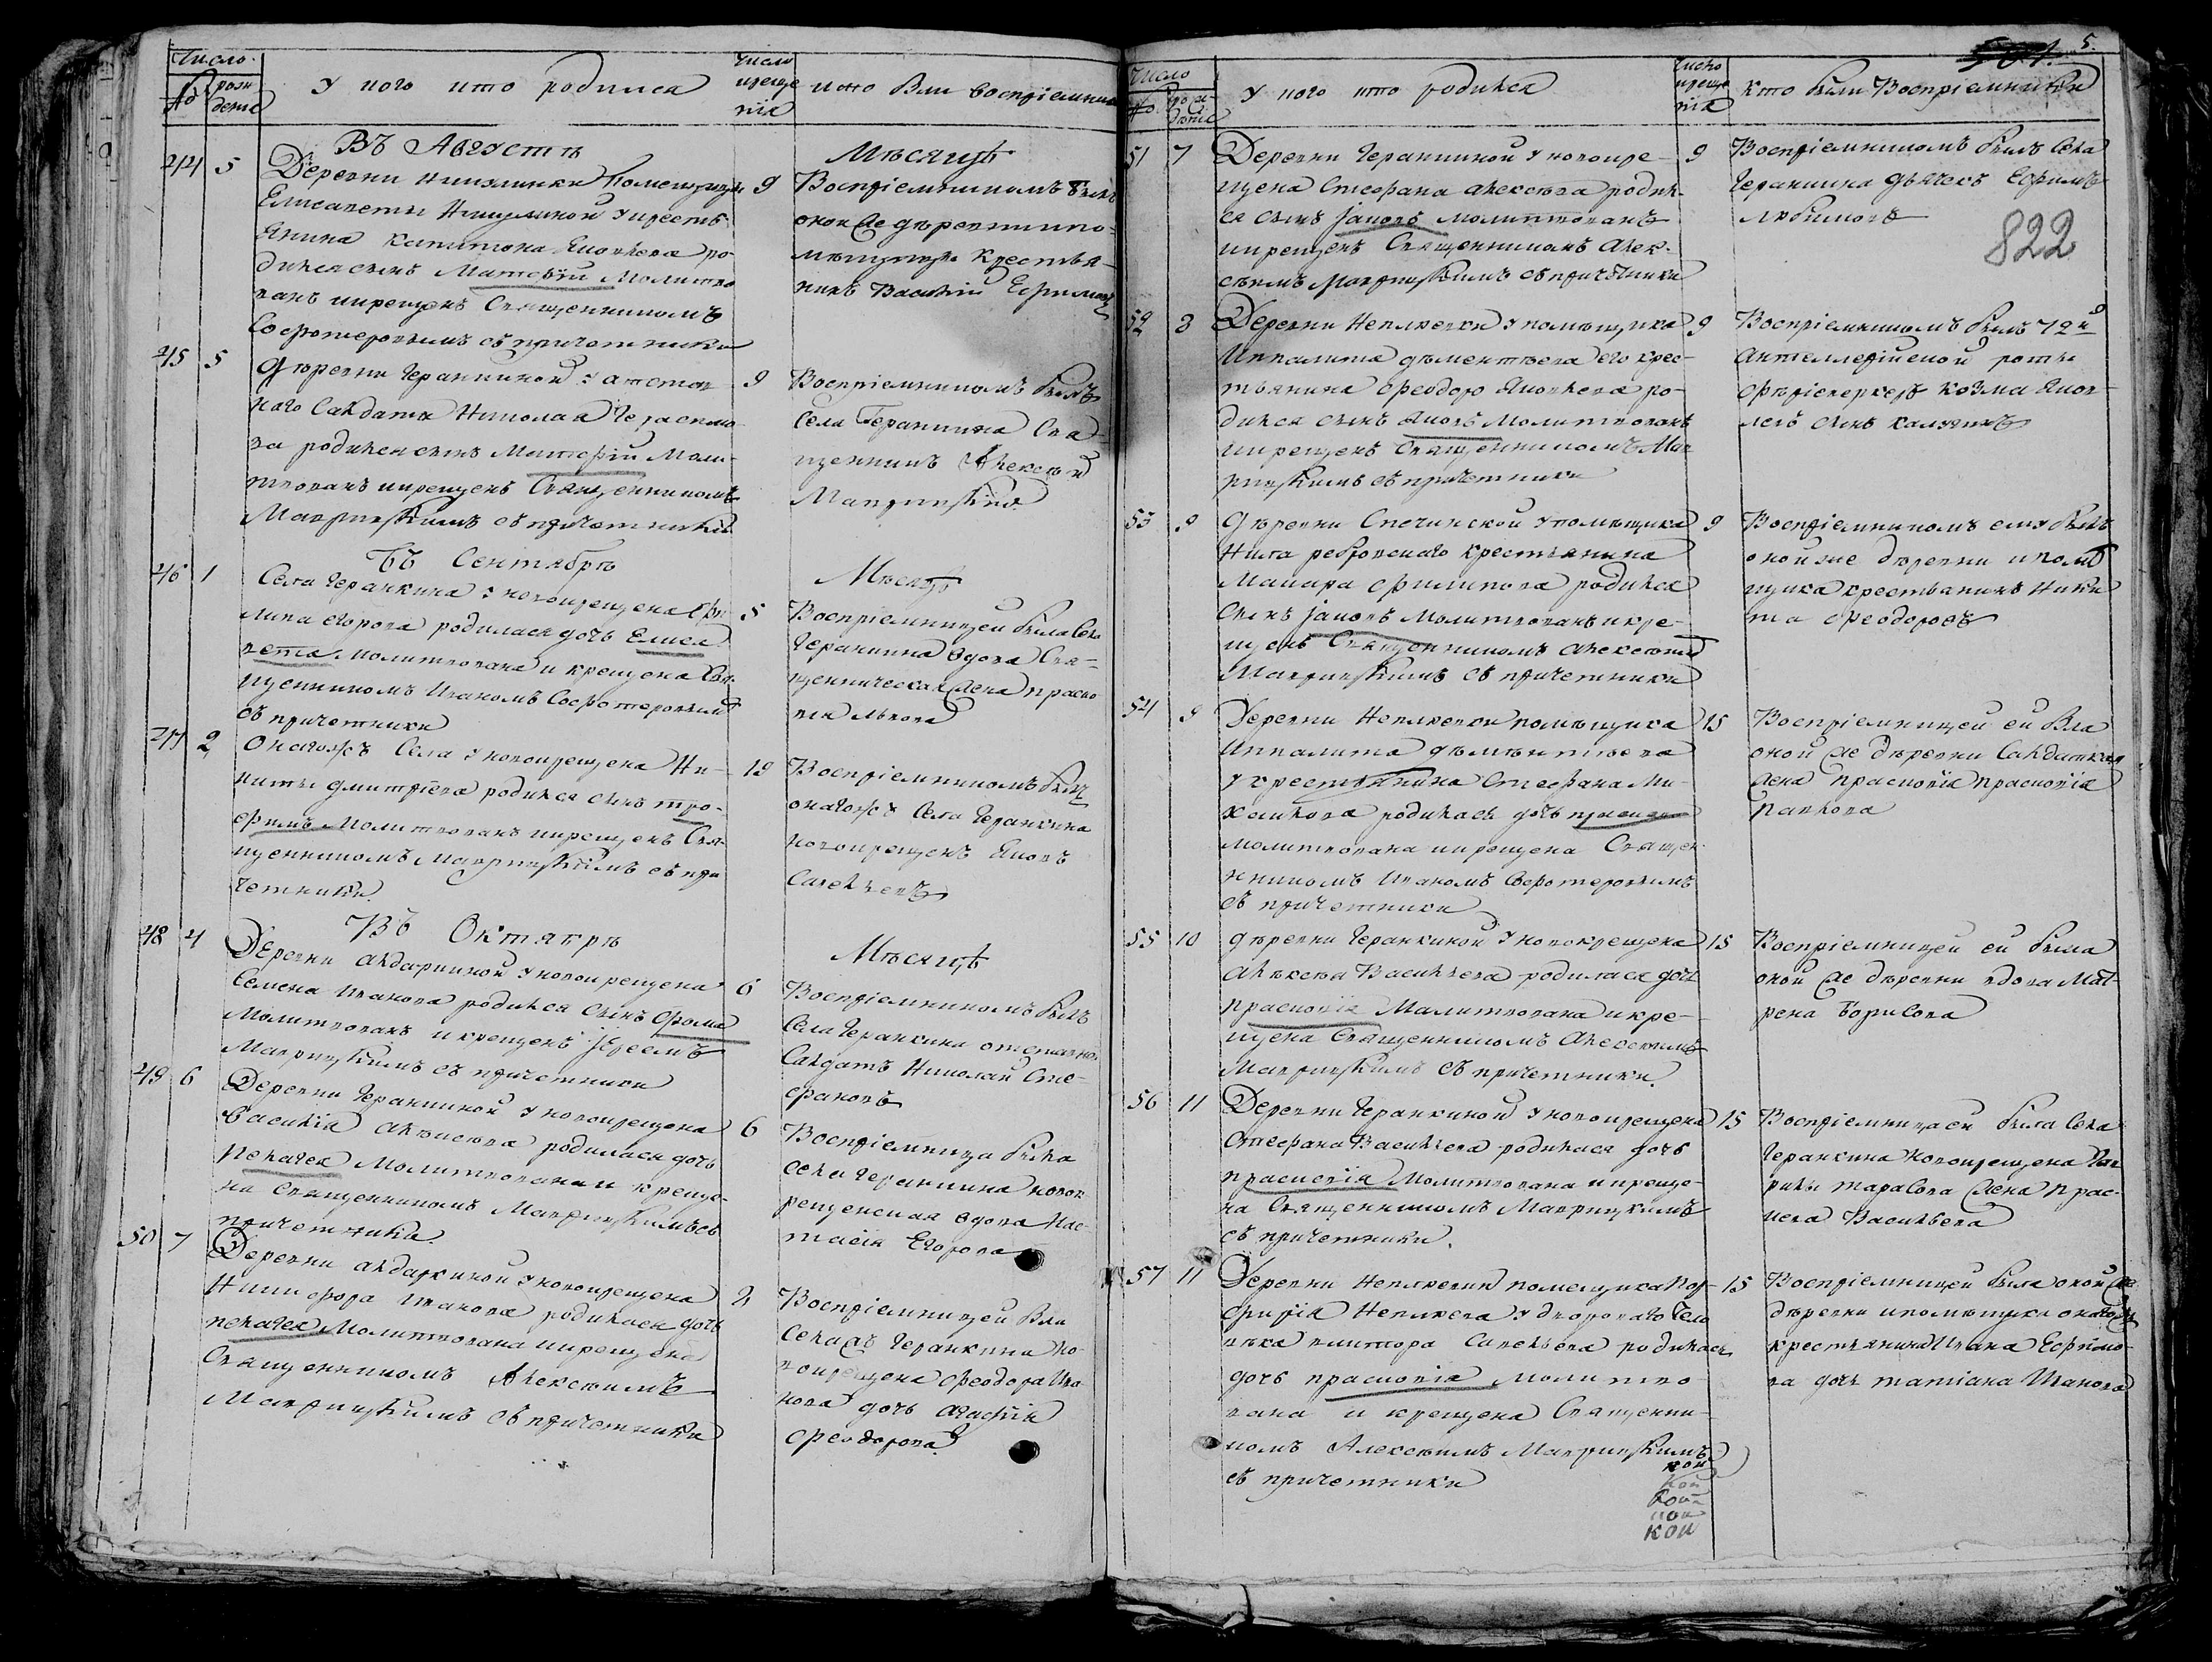 Число
№
рож
денїе
У кого кто родился
число
креще
нїя
кто были воспрїемники
Въ Августѣ
Мѣсяцѣ
44 5
Деревни помещицы
Елисаветы у крестья
янина Капитона Яковлева ро-
дился сынъ Матвѣй Молитво
ванъ и крещенъ Священникомъ
съ причетники
9
Воспрїемникомъ былъ
оной же деревни и по-
мѣщицы Крестья-
нинъ Василїй Ефимовъ
45 5
Деревни Чераккиной у отстав
наго Салдата Николая
ва родился сынъ Матфѣй Моли-
твованъ и крещенъ Священникомъ
съ причетники
9
Воспрїемникомъ былъ
Села Чераккина Свя-
щенникъ Алексѣй
Въ Сентябрѣ
Мѣсяцѣ
46 1
Села Чераккина у новокрещена Фи-
липа Егорова родилася дочь Елиса
вета Молитвована и крещена Свя-
щенникомъ Иваномъ
съ причетники
5
Воспрїемницей была Села
Чераккина вдова Свя-
щенническая жена праско
вья Львова
47 2
Онагожъ Села у новокрещена Ни-
киты Дмитрїева родился сынъ тро-
фимъ Молитвованъ и крещенъ Свя-
щенникомъ съ при
четники.
19
Воспрїемникомъ былъ
онагожъ Села Чераккина
новокрещенъ Яковъ
Савельевъ
Въ Октябрѣ
Мѣсяцѣ
48 4
Деревни у новокрещена
Семена Иванова родился Сынъ Фома
Молитвованъ и крещенъ їереемъ
съ причетники
6
Воспрїемникомъ былъ
Села Чераккина отставно
Салдатъ Николай Сте-
фановъ
49 6
Деревни Чераккиной у новокрещена
Василїя Алексѣева родилася дочь
Пелагея Молитвована и креще-
на Священникомъ съ
причетники.
6
Воспрїемница была
села Чераккина новок
рещенская вдова Нас-
тасїя Егорова
50 7
Деревни у новокрещена
Никифора Иванова родилася дочь
пелагея Молитвована и крещена
Священникомъ Алексѣемъ
съ причетники
Воспрїемницей была
Села Чераккина но-
вокрещена Феодора Ива
нова дочь Агафїя
Феодорова
5.
Число
№
рож-
денїе
У кого кто родился
число
креще
нїя
Кто были Воспрїемники
51 7
Деревни Чераккиной у новокре-
щена Стефана Алексѣева родил-
ся сынъ Їаковъ Молитвованъ
и крещенъ Священникомъ Алек-
сѣемъ съ причетники
9
Воспрїемникомъ былъ Села
Чераккина дьячекъ Ефимъ
Любимовъ
822
52 8
Деревни Неплюевки у помѣщика
Ипполита Дементьева его крес-
тьянина Феодора Яковлева ро-
дился сынъ Яковъ Молитвованъ
и крещенъ Священникомъ
съ причетники
9
Воспрїемникомъ былъ 72й
роты
Козма Яков-
левъ сынъ
53 9
Деревни у помѣщика
крестьянина
Макара Филипова родился
Сынъ Їаковъ Молитвованъ и кре-
щенъ Священникомъ Алексѣемъ
съ причетники
9
Воспрїемникомъ ему былъ
оной же деревни и помѣ
щика крестьянинъ Ники
та Феодоровъ
54 9
Деревни Неплюевки помѣщика
Ипполита Дементьева
у крестьянина Стефана Ми-
хаилова родилась дочь
молитвована и крещена Священ-
никомъ Иваномъ
съ причетники
15
Воспрїемницей ей была
оной же деревни Салдатская
жена прасковїя прасковїя
Павлова
55 10
Деревни Чераккиной у новокрещена
Алексѣя Васильева родилася дочь
прасковїя Малитвована и кре-
щена Священникомъ Алексѣемъ
съ причетники.
15
Воспрїемницей ей была
оной же деревни вдова Мат-
рена Борисова
56 11
Деревни Чераккиной у новокрещена
Стефана Васильева родилася дочь
прасковїя Молитвована и креще-
на Священникомъ
съ причетники.
15
Воспрїемницей была Села
Чераккина новокрещена Гав
рилы тарасова жена прас-
ковья Васильева
57 11
Деревни Неплюевки помещика Пор-
фирїя Неплюева у двороваго чело
вѣка виктора Савельева родилась
дочь прасковїя молитво-
вана и крещена Священни-
комъ Алексѣемъ
съ причетники
15
Воспрїемницей была оной же
деревни и помѣщика онагожъ
крестьянина Ивана Ефимо-
ва дочь татїана Иванова
кои
кои
кои
кои
кои